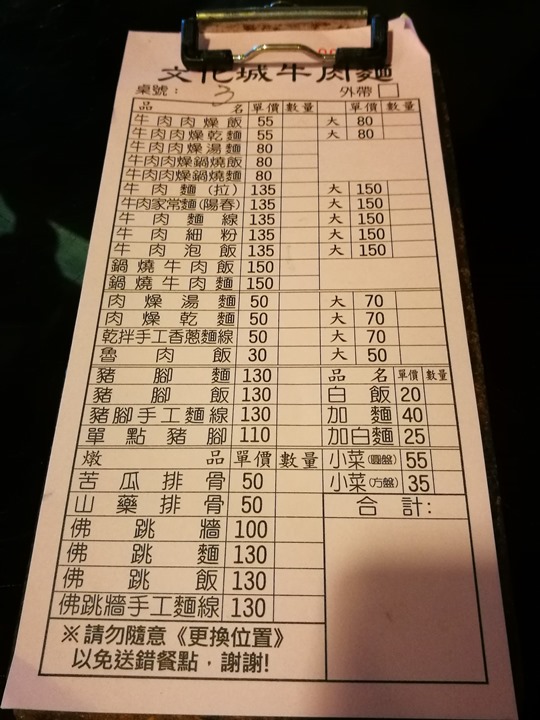 文化城牛肉麵
桌號：3 外帶
品名 單價 數量 單價 數量
牛肉肉燥飯 55 大 80
牛肉肉燥乾麵 55 大 80
牛肉肉燥湯麵 80
牛肉肉燥鍋燒飯 80
牛肉肉燥鍋燒麵 80
牛肉麵(拉) 135 大 150
牛肉家常麵(陽春) 135 大 150
牛肉麵線 135 大 150
牛肉細粉 135 大 150
牛肉泡飯 135 大 150
鍋燒牛肉飯 150
鍋燒牛肉麵 150
肉燥湯麵 50 大 70
肉燥乾麵 50 大 70
乾拌手工香蔥麵線 50 大 70
魯肉飯 30 大 50
豬腳麵 130 品名 單價 數量
豬腳飯 130 白飯 20
豬腳手工麵線 130 加麵 40
單點豬腳 110 加白麵 25
燉品 單價 數量 小菜(圓盤) 55
苦瓜排骨 50 小菜(方盤) 35
山藥排骨 50 合計:
佛跳牆 100
佛跳麵 130
佛跳飯 130
佛跳牆手工麵線 130
※請勿隨意《更換位置》
以免送錯餐點，謝謝!